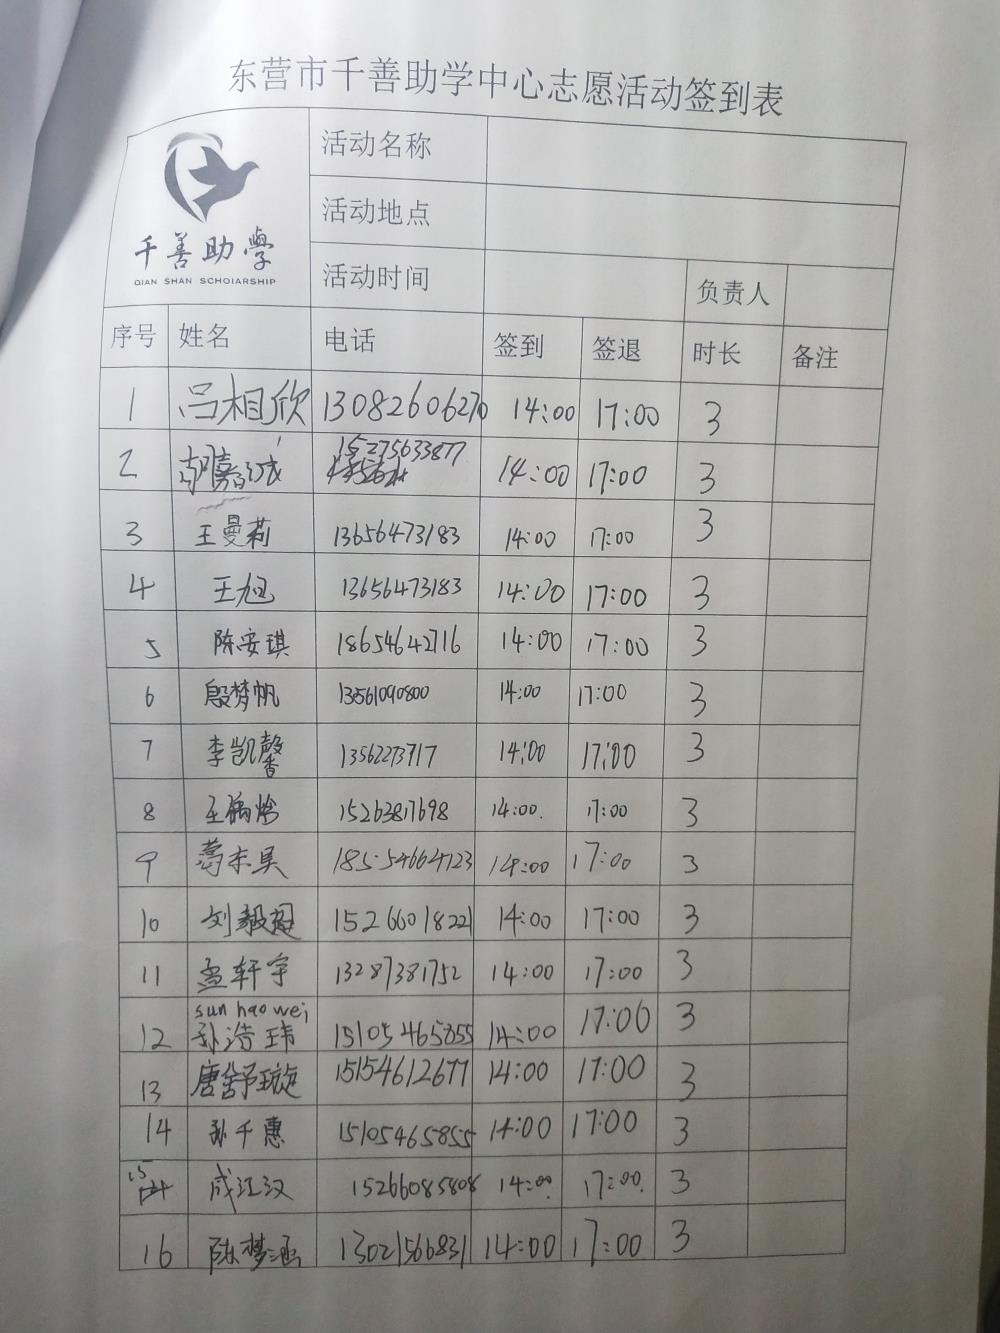 东营市千善助学中心志愿活动签到表
千善助學
QIAN SHAN SCHOLARSHIP
活动名称
活动地点
活动时间 负责人
序号 姓名 电话 签到 签退 时长 备注
1 吕相欣 13082606270 14:00 17:00 3
2 胡嘉诚 15275633877 14:00 17:00 3
3 王曼莉 13656473183 14:00 17:00 3
4 王旭 13656473183 14:00 17:00 3
5 陈安琪 18654642716 14:00 17:00 3
6 殷梦帆 13561090800 14:00 17:00 3
7 李凯馨 13562273717 14:00 17:00 3
8 15263817698 14:00. 17:00 3
9 18554664123 14:00 17:00 3
10 刘毅 15266018221 14:00 17:00 3
11 孟轩宇 13287381752 14:00 17:00 3
sun hao wei
12 孙浩玮 15105465855 14:00 17:00 3
13 唐舒璇 15154612677 14:00 17:00 3
14 孙千惠 15105465855 14:00 17:00 3
15 成江汉 15266085808 14:00 17:00 3
16 陈梦涵 13021566831 14:00 17:00 3